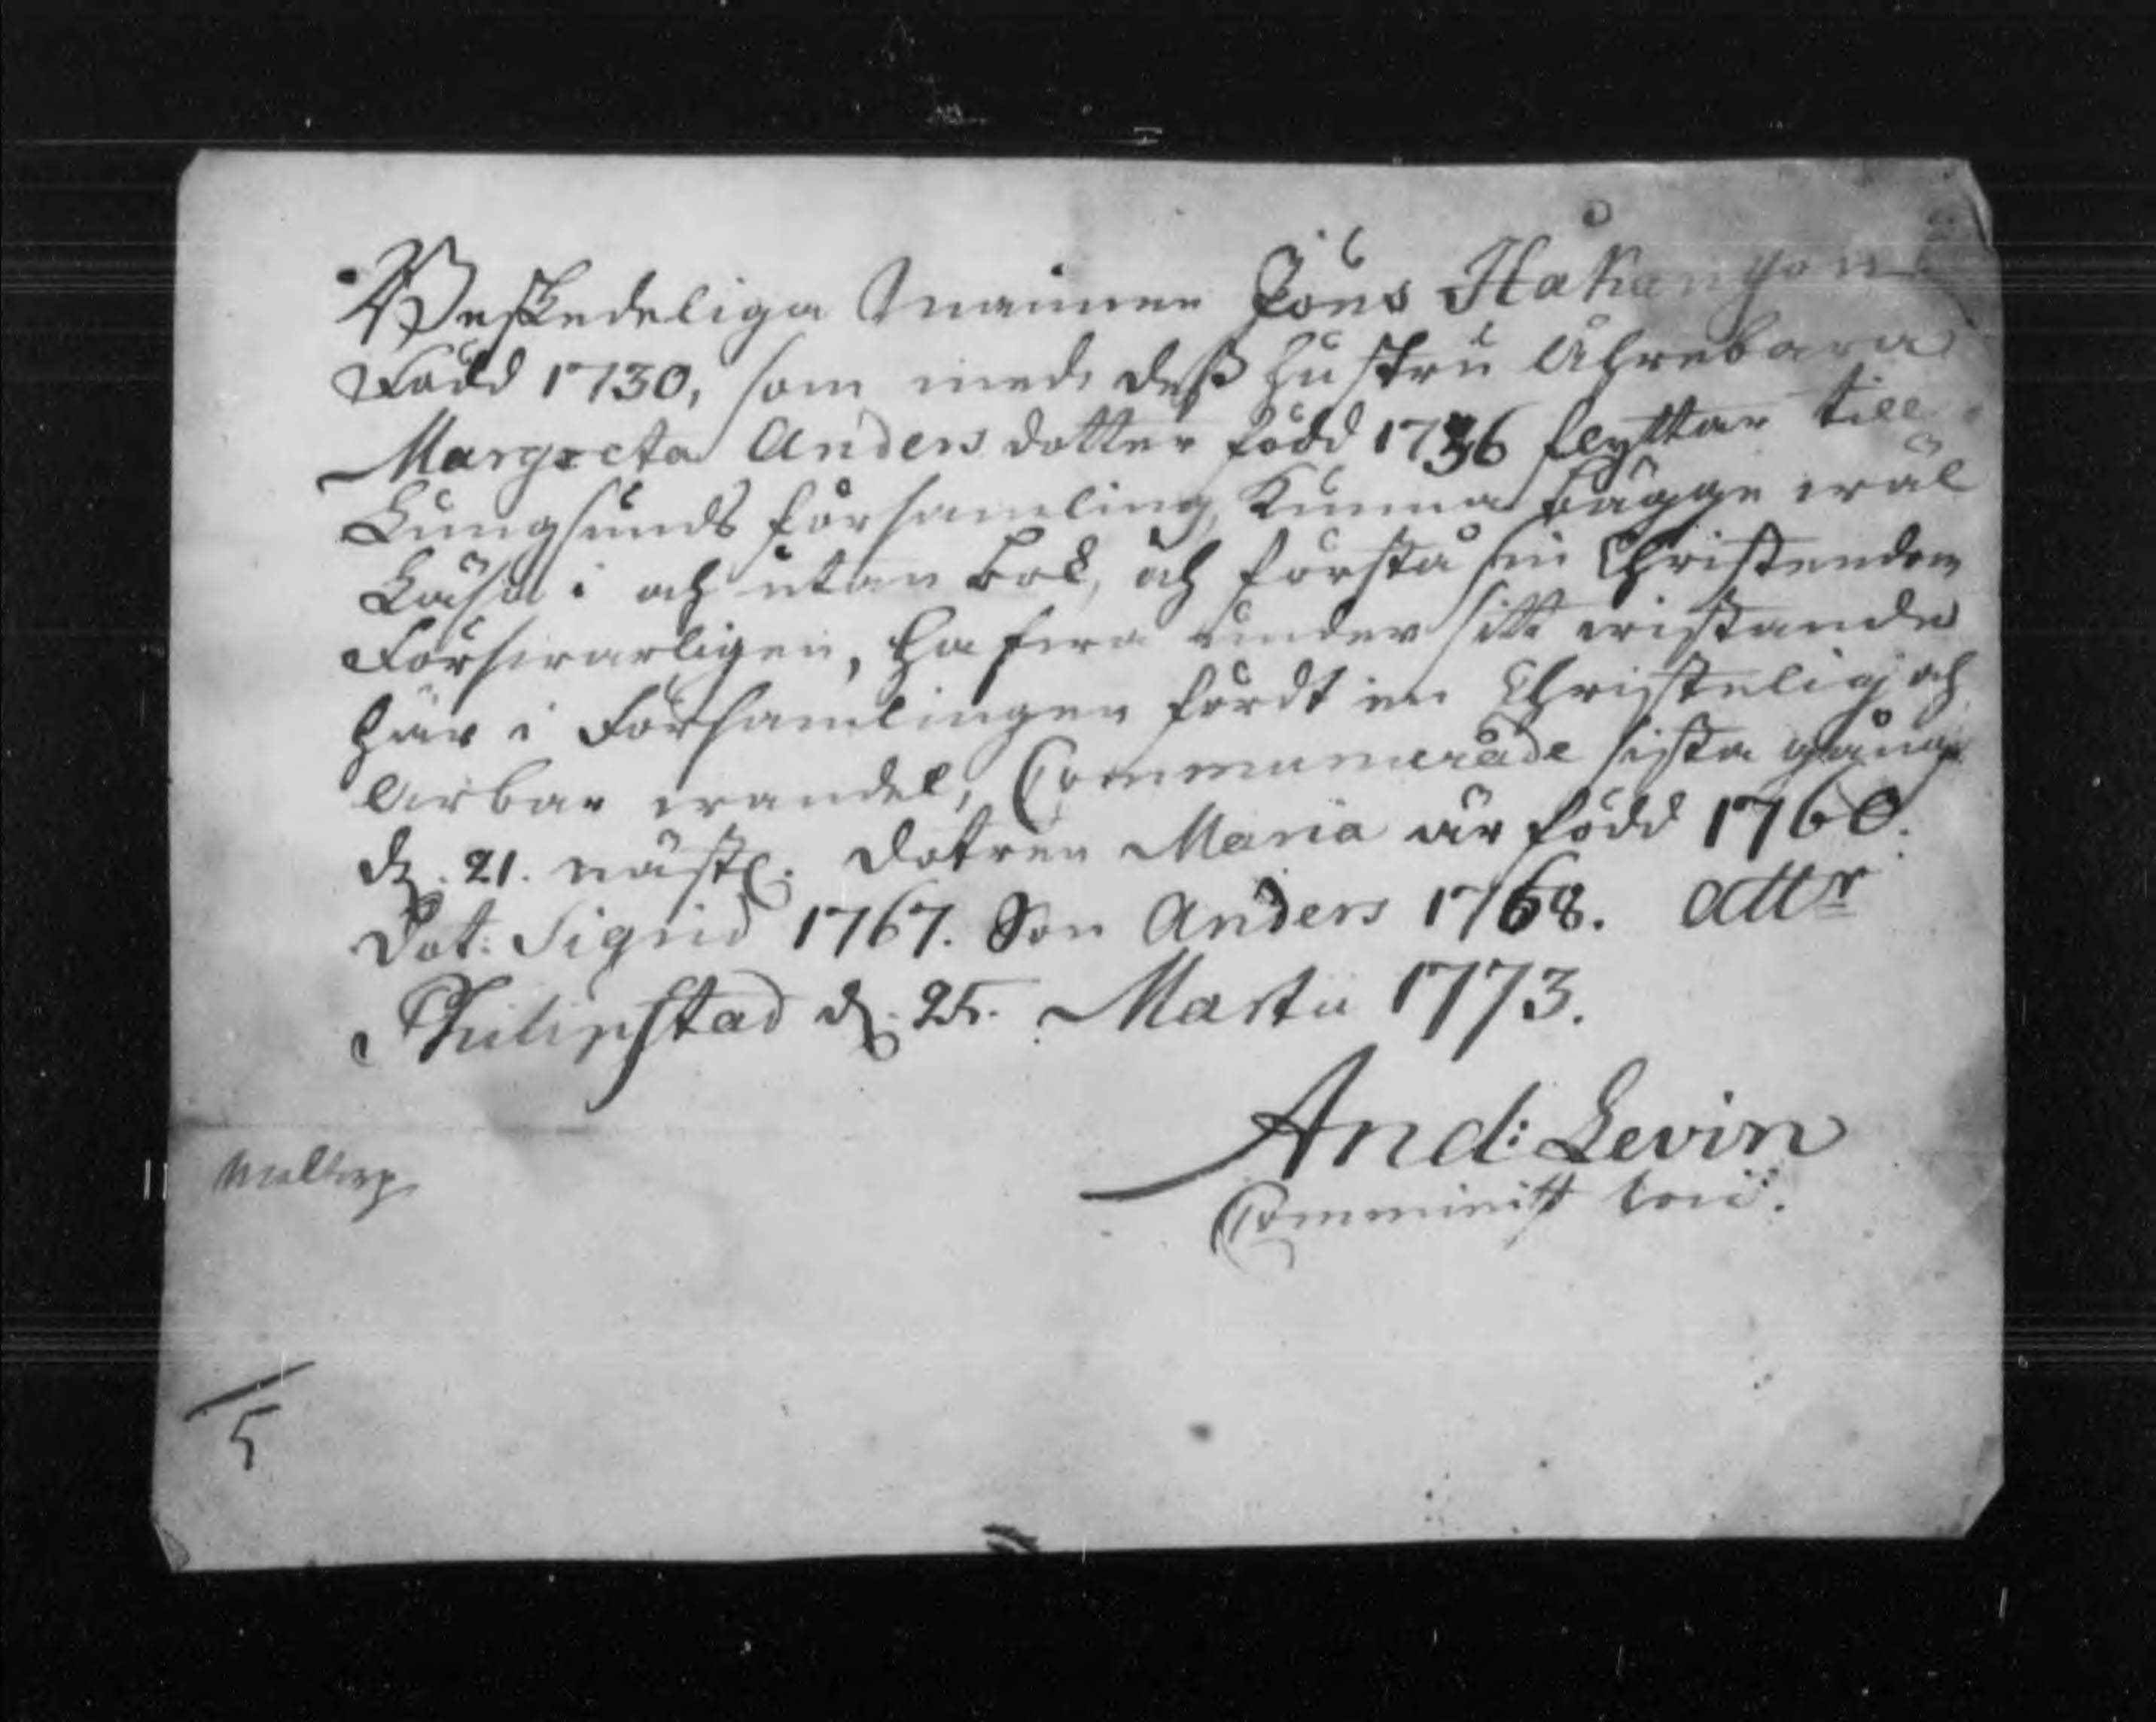 Beskedeliga Mannen Jöns Håkanson
Född 1730, som med deß hustru Ährebara
Margreta Anders dotter född 1736 flyttar till
Lungsunds församling, Kunna bägge wäl
Läsa i och utan bok, och förstå sin Christendom
Försvarligen, hafwa under sitt wistande
här i Församlingen fördt en Christelig och
Ärbar wandel, Communicerade sista gång
d. 21. nästl. Dotren Maria är född 1760.
Dot: Sigrid 1767. Son Anders 1768. Attr
Philipstad d. 25. Martii 1773.
And: Levin
Comminist
5